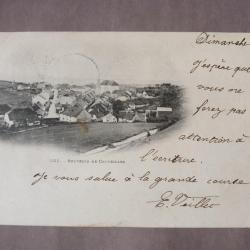 Dimanche
j'espère que
vous ne
ferez pas
attention à
l'écriture.
Je vous salue à la grande course
SOUVENIR DE
E.